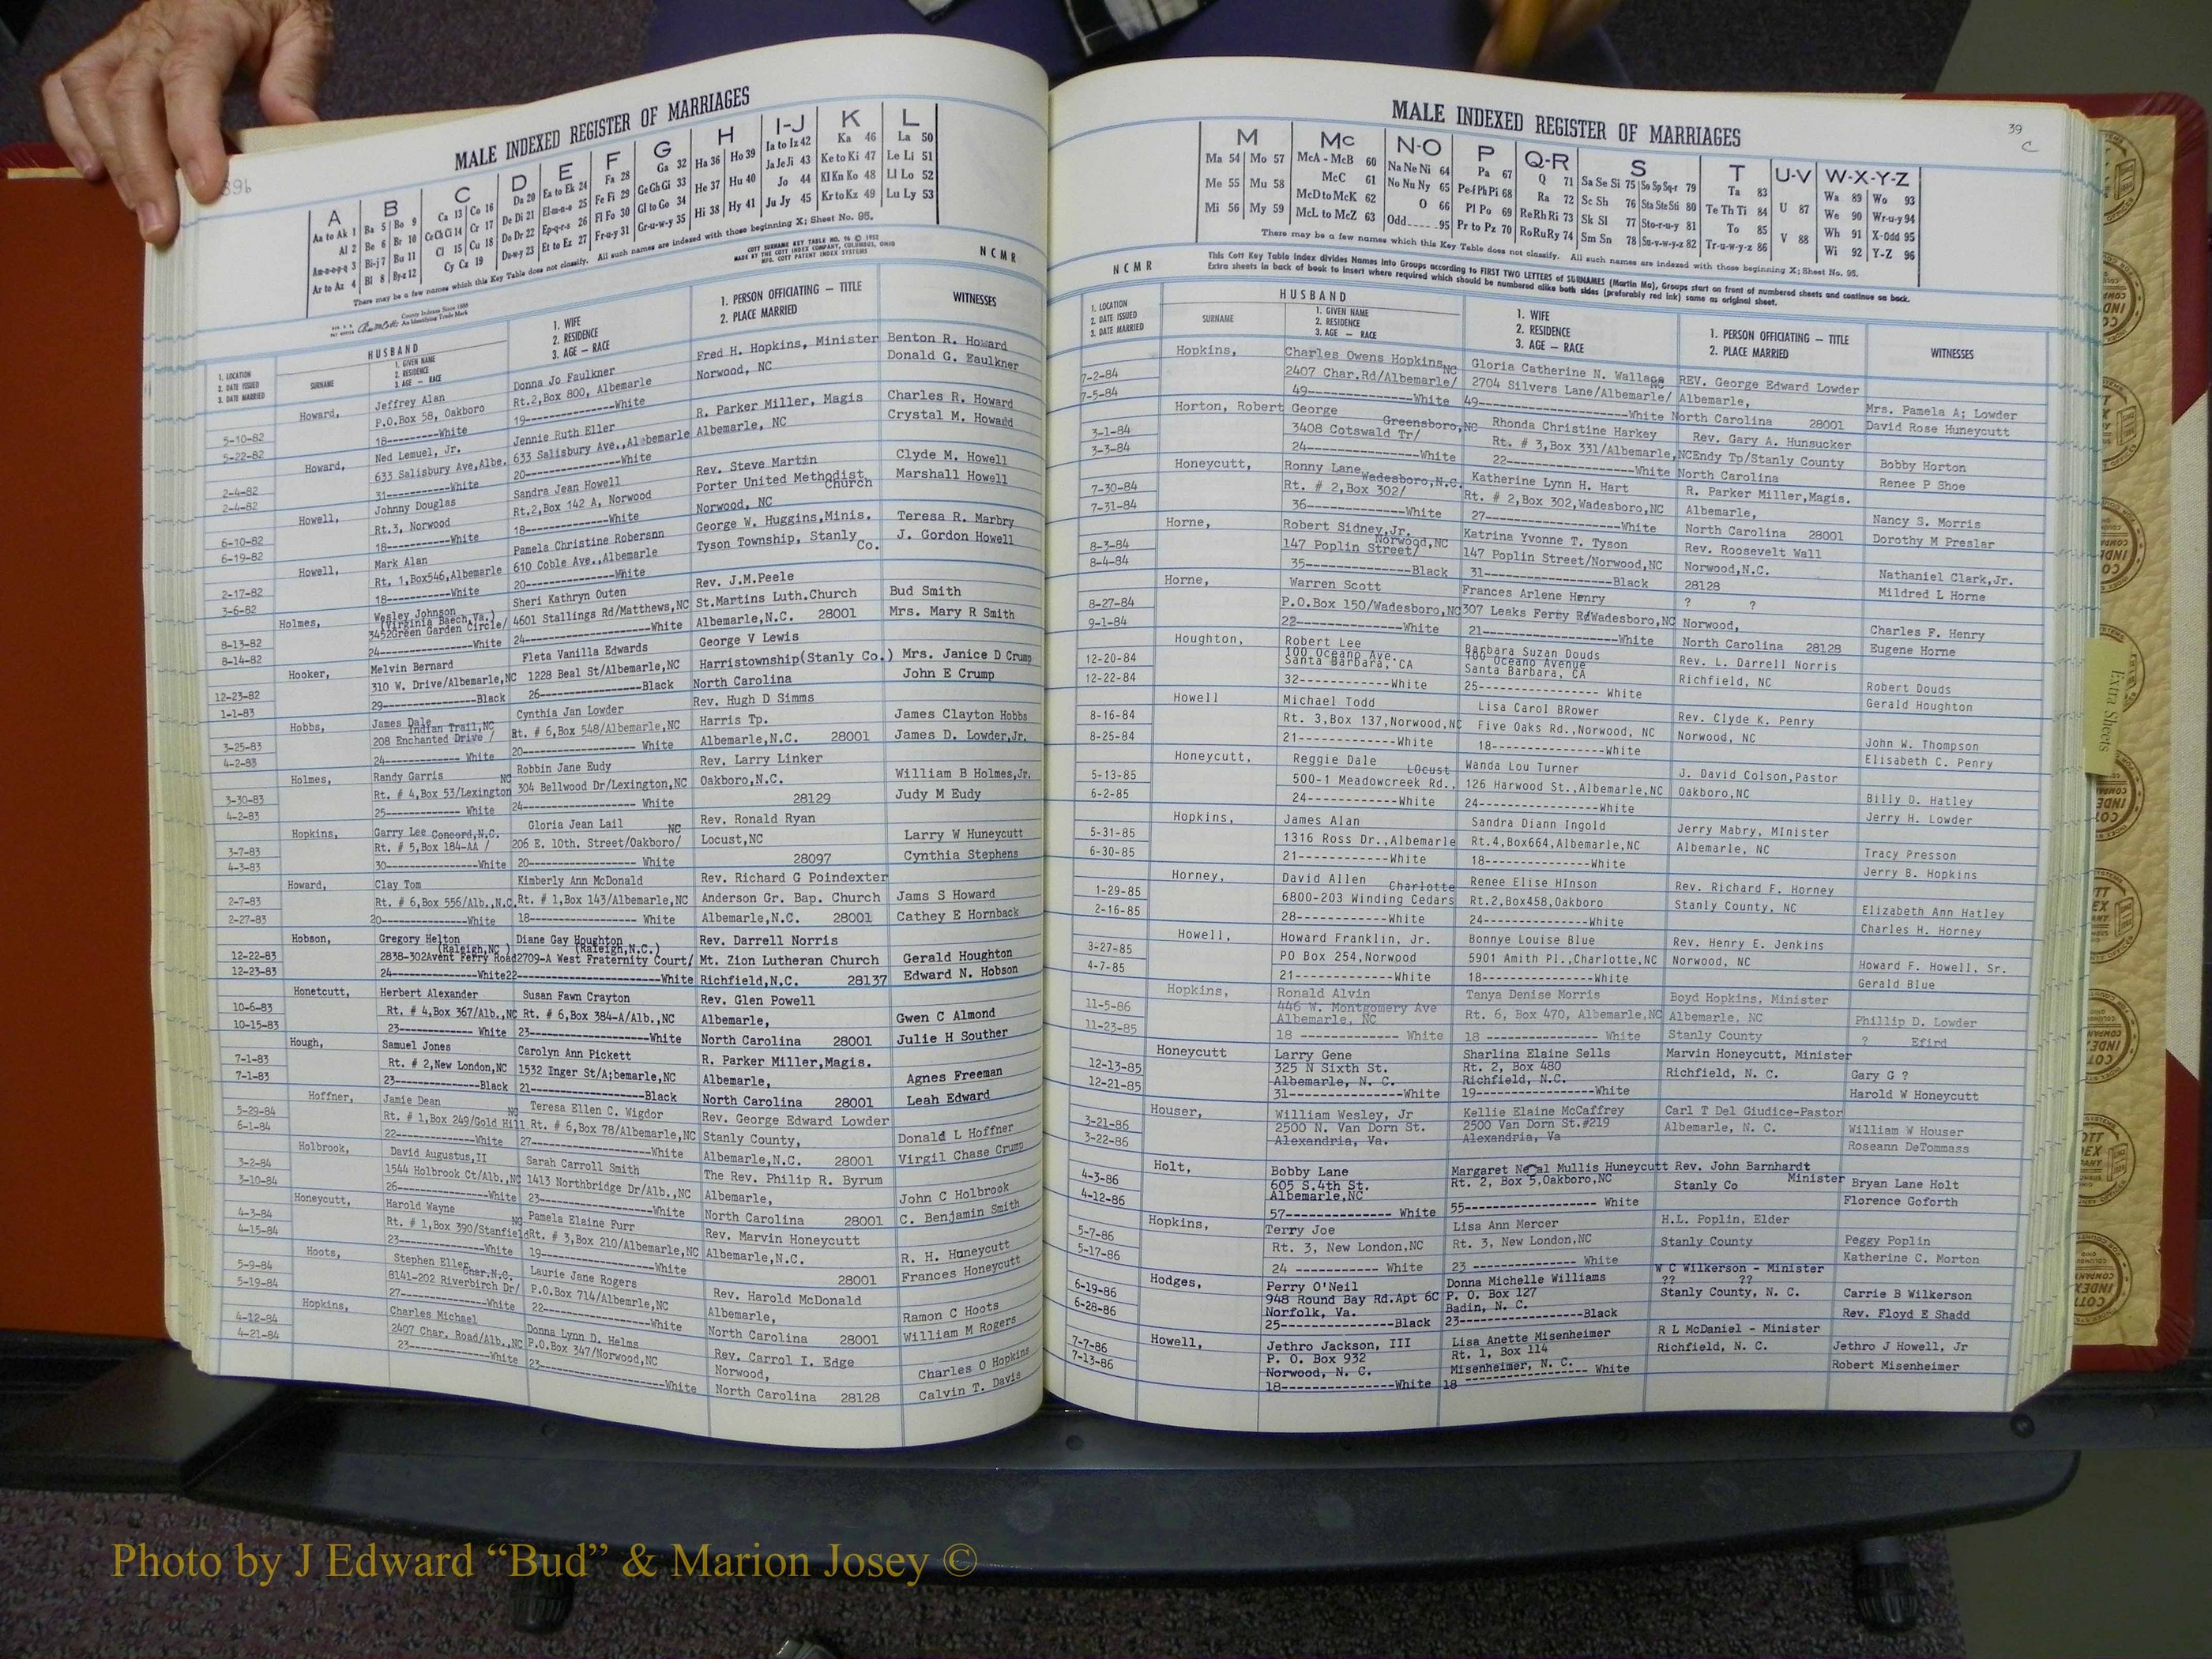 39b
MALE INDEXED REGISTER OF MARRIAGES
A
Aa to Ak 1
Al 2
Am-n-o-p-q 3
Ar to Az 4
B
Ba 5 Bo 9
Be 6 Br 10
Bi-j 7 Bu 11
Bl 8 By-z 12
C
Ca 13 Co 16
Ce Ch Ci 14 Cr 17
Cl 15 Cu 18
Cy Cz 19
D
Da 20
De Di 21
Do Dr 22
Du-w-y 23
E
Ea to Ek 24
El-m-n-o 25
Ep-q-r-s 26
Et to Ez 27
F
Fa 28
Fe Fi 29
Fl Fo 30
Fr-u-y 31
G
Ga 32
Ge Gh Gi 33
Gl to Go 34
Gr-u-w-y 35
H
Ha 36 Ho 39
He 37 Hu 40
Hi 38 Hy 41
I-J
Ia to Iz 42
Ja Je Ji 43
Jo 44
Ju Jy 45
K
Ka 46
Ke to Ki 47
Kl Kn Ko 48
Kr to Kz 49
L
La 50
Le Li 51
Ll Lo 52
Lu Ly 53
There may be a few names which this Key Table does not classify. All such names are indexed with those beginning X; Sheet No. 95.
COTT SURNAME KEY TABLE NO. 96 © 1952
MADE BY THE COTT INDEX COMPANY, COLUMBUS, OHIO
MFG. COTT PATENT INDEX SYSTEMS
NCMR
County Indexes Since 1888
An Identifying Trade Mark
1. LOCATION
2. DATE ISSUED
3. DATE MARRIED
HUSBAND
SURNAME
1. GIVEN NAME
2. RESIDENCE
3. AGE — RACE
1. WIFE
2. RESIDENCE
3. AGE — RACE
1. PERSON OFFICIATING — TITLE
2. PLACE MARRIED
WITNESSES
Howard, Jeffrey Alan Donna Jo Faulkner Fred H. Hopkins, Minister Benton R. Howard
5-10-82 P.O.Box 58, Oakboro Rt.2,Box 800, Albemarle Norwood, NC Donald G. Faulkner
5-22-82 18---------White 19--------------White
Howard, Ned Lemuel, Jr. Jennie Ruth Eller R. Parker Miller, Magis Charles R. Howard
2-4-82 633 Salisbury Ave,Albe. 633 Salisbury Ave.,Albemarle Albemarle, NC Crystal M. Howard
2-4-82 31----------White 20--------------White
Howell, Johnny Douglas Sandra Jean Howell Rev. Steve Martin Clyde M. Howell
6-10-82 Rt.3, Norwood Rt,2,Box 142 A, Norwood Porter United Methodist Church Marshall Howell
6-19-82 18----------White 18-------------White Norwood, NC
Howell, Mark Alan Pamela Christine Robersnn George W. Huggins,Minis. Teresa R. Marbry
2-17-82 Rt. 1,Box546,Albemarle 610 Coble Ave.,Albemarle Tyson Township, Stanly Co. J. Gordon Howell
3-6-82 18----------White 20-------------White
Holmes, Wesley Johnson Sheri Kathryn Outen Rev. J.M.Peele Bud Smith
8-13-82 (Virginia Baech,Va.) 3452Green Garden Circle/ 4601 Stallings Rd/Matthews,NC St.Martins Luth.Church Mrs. Mary R Smith
8-14-82 24--------------White 24---------------White Albemarle,N.C. 28001
Hooker, Melvin Bernard Fleta Vanilla Edwards George V Lewis
12-23-82 310 W. Drive/Albemarle,NC 1228 Beal St/Albemarle,NC Harristownship(Stanly Co.) Mrs. Janice D Crump
1-1-83 29--------------Black 26----------------Black North Carolina John E Crump
Hobbs, James Dale Cynthia Jan Lowder Rev. Hugh D Simms
3-25-83 Indian Trail,NC 208 Enchanted Drive / Rt. # 6,Box 548/Albemarle,NC Harris Tp. James Clayton Hobbs
4-2-83 24------------ White 20------------------ White Albemarle,N.C. 28001 James D. Lowder,Jr.
Holmes, Randy Garris Robbin Jane Eudy Rev. Larry Linker
3-30-83 Rt. # 4,Box 53/Lexington NC 304 Bellwood Dr/Lexington,NC Oakboro,N.C. William B Holmes,Jr.
4-2-83 25------------ White 24---------------- White 28129 Judy M Eudy
Hopkins, Garry Lee Concord,N.C. Gloria Jean Lail Rev. Ronald Ryan
3-7-83 Rt. # 5,Box 184-AA / 206 E. 10th. Street/Oakboro/ NC Locust,NC Larry W Huneycutt
4-3-83 30--------------White 20---------------- White 28097 Cynthia Stephens
Howard, Clay Tom Kimberly Ann McDonald Rev. Richard G Poindexter
2-7-83 Rt. # 6,Box 556/Alb.,N.C. Rt. # 1,Box 143/Albemarle,NC Anderson Gr. Bap. Church Jams S Howard
2-27-83 20-------------White 18---------------- White Albemarle,N.C. 28001 Cathey E Hornback
Hobson, Gregory Helton Diane Gay Houghton Rev. Darrell Norris
12-22-83 (Raleigh,NC ) 2838-302Avent Ferry Road (Raleigh,N.C.) 2709-A West Fraternity Court/ Mt. Zion Lutheran Church Gerald Houghton
12-23-83 24--------------White 22--------------------White Richfield,N.C. 28137 Edward N. Hobson
Honetcutt, Herbert Alexander Susan Fawn Crayton Rev. Glen Powell
10-6-83 Rt. # 4,Box 367/Alb.,NC Rt. # 6,Box 384-A/Alb.,NC Albemarle, Gwen C Almond
10-15-83 23------------ White 23-----------------White North Carolina 28001 Julie H Souther
Hough, Samuel Jones Carolyn Ann Pickett R. Parker Miller,Magis.
7-1-83 Rt. # 2,New London,NC 1532 Inger St/A;bemarle,NC Albemarle, Agnes Freeman
7-1-83 23--------------Black 21-----------------Black North Carolina 28001 Leah Edward
Hoffner, Jamie Dean Teresa Ellen C. Wigdor Rev. George Edward Lowder
5-29-84 Rt. # 1,Box 249/Gold Hill NC Rt. # 6,Box 78/Albemarle,NC Stanly County, Donald L Hoffner
6-1-84 22-------------White 27-----------------White Albemarle,N.C. 28001 Virgil Chase Crump
Holbrook, David Augustus,II Sarah Carroll Smith The Rev. Philip R. Byrum
3-2-84 1544 Holbrook Ct/Alb.,NC 1413 Northbridge Dr/Alb.,NC Albemarle, John C Holbrook
3-10-84 26---------------White 23-----------------White North Carolina 28001 C. Benjamin Smith
Honeycutt, Harold Wayne Pamela Elaine Furr Rev. Marvin Honeycutt
4-3-84 Rt. # 1,Box 390/Stanfield NC Rt. # 3,Box 210/Albemarle,NC Albemarle,N.C. R. H. Huneycutt
4-15-84 23---------------White 19-----------------White 28001 Frances Honeycutt
Hoots, Stephen Eller Laurie Jane Rogers Rev. Harold McDonald
5-9-84 Char.N.C. 8141-202 Riverbirch Dr/ P.O.Box 714/Albemrle,NC Albemarle, Ramon C Hoots
5-19-84 27---------------White 22-----------------White North Carolina 28001 William M Rogers
Hopkins, Charles Michael Donna Lynn D. Helms Rev. Carrol I. Edge
4-12-84 2407 Char. Road/Alb.,NC P.O.Box 347/Norwood,NC Norwood, Charles O Hopkins
4-21-84 23---------------White 23------------------White North Carolina 28128 Calvin T. Davis
39
C
MALE INDEXED REGISTER OF MARRIAGES
M
Ma 54 Mo 57
Me 55 Mu 58
Mi 56 My 59
Mc
McA - McB 60
McC 61
McD to McK 62
McL to McZ 63
N-O
Na Ne Ni 64
No Nu Ny 65
O 66
Odd......95
P
Pa 67
Pe-f Ph Pi 68
Pl Po 69
Pr to Pz 70
Q-R
Q 71
Ra 72
Re Rh Ri 73
Ro Ru Ry 74
S
Sa Se Si 75 So Sp Sq-r 79
Sc Sh 76 Sta Ste Sti 80
Sk Sl 77 Sto-r-u-y 81
Sm Sn 78 Su-v-w-y-z 82
T
Ta 83
Te Th Ti 84
To 85
Tr-u-w-y-z 86
U-V
U 87
V 88
W-X-Y-Z
Wa 89 Wo 93
We 90 Wr-u-y 94
Wh 91 X-Odd 95
Wi 92 Y-Z 96
There may be a few names which this Key Table does not classify. All such names are indexed with those beginning X; Sheet No. 95.
NCMR
This Cott Key Table Index divides Names into Groups according to FIRST TWO LETTERS of SURNAMES (Martin Ma), Groups start on front of numbered sheets and continue on back.
Extra sheets in back of book to insert where required which should be numbered alike both sides (preferably red ink) same as original sheet.
1. LOCATION
2. DATE ISSUED
3. DATE MARRIED
HUSBAND
SURNAME
1. GIVEN NAME
2. RESIDENCE
3. AGE — RACE
1. WIFE
2. RESIDENCE
3. AGE — RACE
1. PERSON OFFICIATING — TITLE
2. PLACE MARRIED
WITNESSES
Hopkins, Charles Owens Hopkins Gloria Catherine N. Wallace REV. George Edward Lowder
7-2-84 2407 Char.Rd/Albemarle/ NC 2704 Silvers Lane/Albemarle/ NC Albemarle, Mrs. Pamela A; Lowder
7-5-84 49---------------White 49--------------------White North Carolina 28001 David Rose Huneycutt
Horton, Robert George Rhonda Christine Harkey Rev. Gary A. Hunsucker
3-1-84 Greensboro,NC 3408 Cotswald Tr/ Rt. # 3,Box 331/Albemarle,NC Endy Tp/Stanly County Bobby Horton
3-3-84 24-----------------White 22------------------White North Carolina Renee P Shoe
Honeycutt, Ronny Lane Katherine Lynn H. Hart R. Parker Miller,Magis.
7-30-84 Wadesboro,N.C. Rt. # 2,Box 302/ Rt. # 2,Box 302,Wadesboro,NC Albemarle, Nancy S. Morris
7-31-84 36---------------White 27-----------------White North Carolina 28001 Dorothy M Preslar
Horne, Robert Sidney,Jr. Katrina Yvonne T. Tyson Rev. Roosevelt Wall
8-3-84 Norwood,NC 147 Poplin Street/ 147 Poplin Street/Norwood,NC Norwood,N.C. Nathaniel Clark,Jr.
8-4-84 35----------------Black 31----------------Black 28128 Mildred L Horne
Horne, Warren Scott Frances Arlene Henry ? ?
8-27-84 P.O.Box 150/Wadesboro,NC 307 Leaks Ferry Rd/Wadesboro,NC Norwood, Charles F. Henry
9-1-84 22---------------White 21------------------White North Carolina 28128 Eugene Horne
Houghton, Robert Lee Barbara Suzan Douds Rev. L. Darrell Norris
12-20-84 100 Oceano Ave. 100 Oceano Avenue Richfield, NC Robert Douds
12-22-84 Santa Barbara, CA Santa Barbara, CA Gerald Houghton
32------------White 25---------------- White
Howell Michael Todd Lisa Carol BRower Rev. Clyde K. Penry
8-16-84 Rt. 3,Box 137,Norwood,NC Five Oaks Rd.,Norwood, NC Norwood, NC John W. Thompson
8-25-84 21-------------White 18---------------White Elisabeth C. Penry
Honeycutt, Reggie Dale Wanda Lou Turner J. David Colson,Pastor
5-13-85 LOcust 500-1 Meadowcreek Rd., 126 Harwood St.,Albemarle,NC Oakboro,NC Billy D. Hatley
6-2-85 24------------White 24----------------White Jerry H. Lowder
Hopkins, James Alan Sandra Diann Ingold Jerry Mabry, MInister
5-31-85 1316 Ross Dr.,Albemarle Rt.4,Box664,Albemarle,NC Albemarle, NC Tracy Presson
6-30-85 21------------White 18---------------White Jerry B. Hopkins
Horney, David Allen Renee Elise HInson Rev. Richard F. Horney
1-29-85 Charlotte 6800-203 Winding Cedars Rt.2,Box458,Oakboro Stanly County, NC Elizabeth Ann Hatley
2-16-85 28------------White 24---------------White Charles H. Horney
Howell, Howard Franklin, Jr. Bonnye Louise Blue Rev. Henry E. Jenkins
3-27-85 PO Box 254,Norwood 5901 Amith Pl.,Charlotte,NC Norwood, NC Howard F. Howell, Sr.
4-7-85 21-------------White 18---------------White Gerald Blue
Hopkins, Ronald Alvin Tanya Denise Morris Boyd Hopkins, Minister
11-5-86 446 W. Montgomery Ave Rt. 6, Box 470, Albemarle,NC Albemarle, NC Phillip D. Lowder
11-23-85 Albemarle, NC Stanly County ? Efird
18 ------------- White 18 --------------- White
Honeycutt Larry Gene Sharlina Elaine Sells Marvin Honeycutt, Minister
12-13-85 325 N Sixth St. Rt. 2, Box 480 Richfield, N. C. Gary G ?
12-21-85 Albemarle, N. C. Richfield, N.C. Harold W Honeycutt
31---------------White 19----------------White
Houser, William Wesley, Jr Kellie Elaine McCaffrey Carl T Del Giudice-Pastor
3-21-86 2500 N. Van Dorn St. 2500 Van Dorn St.#219 Albemarle, N. C. William W Houser
3-22-86 Alexandria, Va. Alexandria, Va Roseann DeTommass
Holt, Bobby Lane Margaret Neal Mullis Huneycutt Rev. John Barnhardt Minister
4-3-86 605 S.4th St. Rt. 2, Box 5,Oakboro,NC Stanly Co Bryan Lane Holt
4-12-86 Albemarle,NC Florence Goforth
57-------------- White 55-------------- White
Hopkins, Terry Joe Lisa Ann Mercer H.L. Poplin, Elder
5-7-86 Rt. 3, New London,NC Rt. 3, New London,NC Stanly County Peggy Poplin
5-17-86 24 ----------- White 23 --------------- White Katherine C. Morton
Hodges, Perry O'Neil Donna Michelle Williams W C Wilkerson - Minister
?? ??
6-19-86 948 Round Bay Rd.Apt 6C P. O. Box 127 Stanly County, N. C. Carrie B Wilkerson
6-28-86 Norfolk, Va. Badin, N. C. Rev. Floyd E Shadd
25----------------Black 23-----------------Black
Howell, Jethro Jackson, III Lisa Anette Misenheimer R L McDaniel - Minister
7-7-86 P. O. Box 932 Rt. 1, Box 114 Richfield, N. C. Jethro J Howell, Jr
7-13-86 Norwood, N. C. Misenheimer, N. C. Robert Misenheimer
18----------------White 18 ----------------- White
Extra Sheets
Photo by J Edward “Bud” & Marion Josey ©